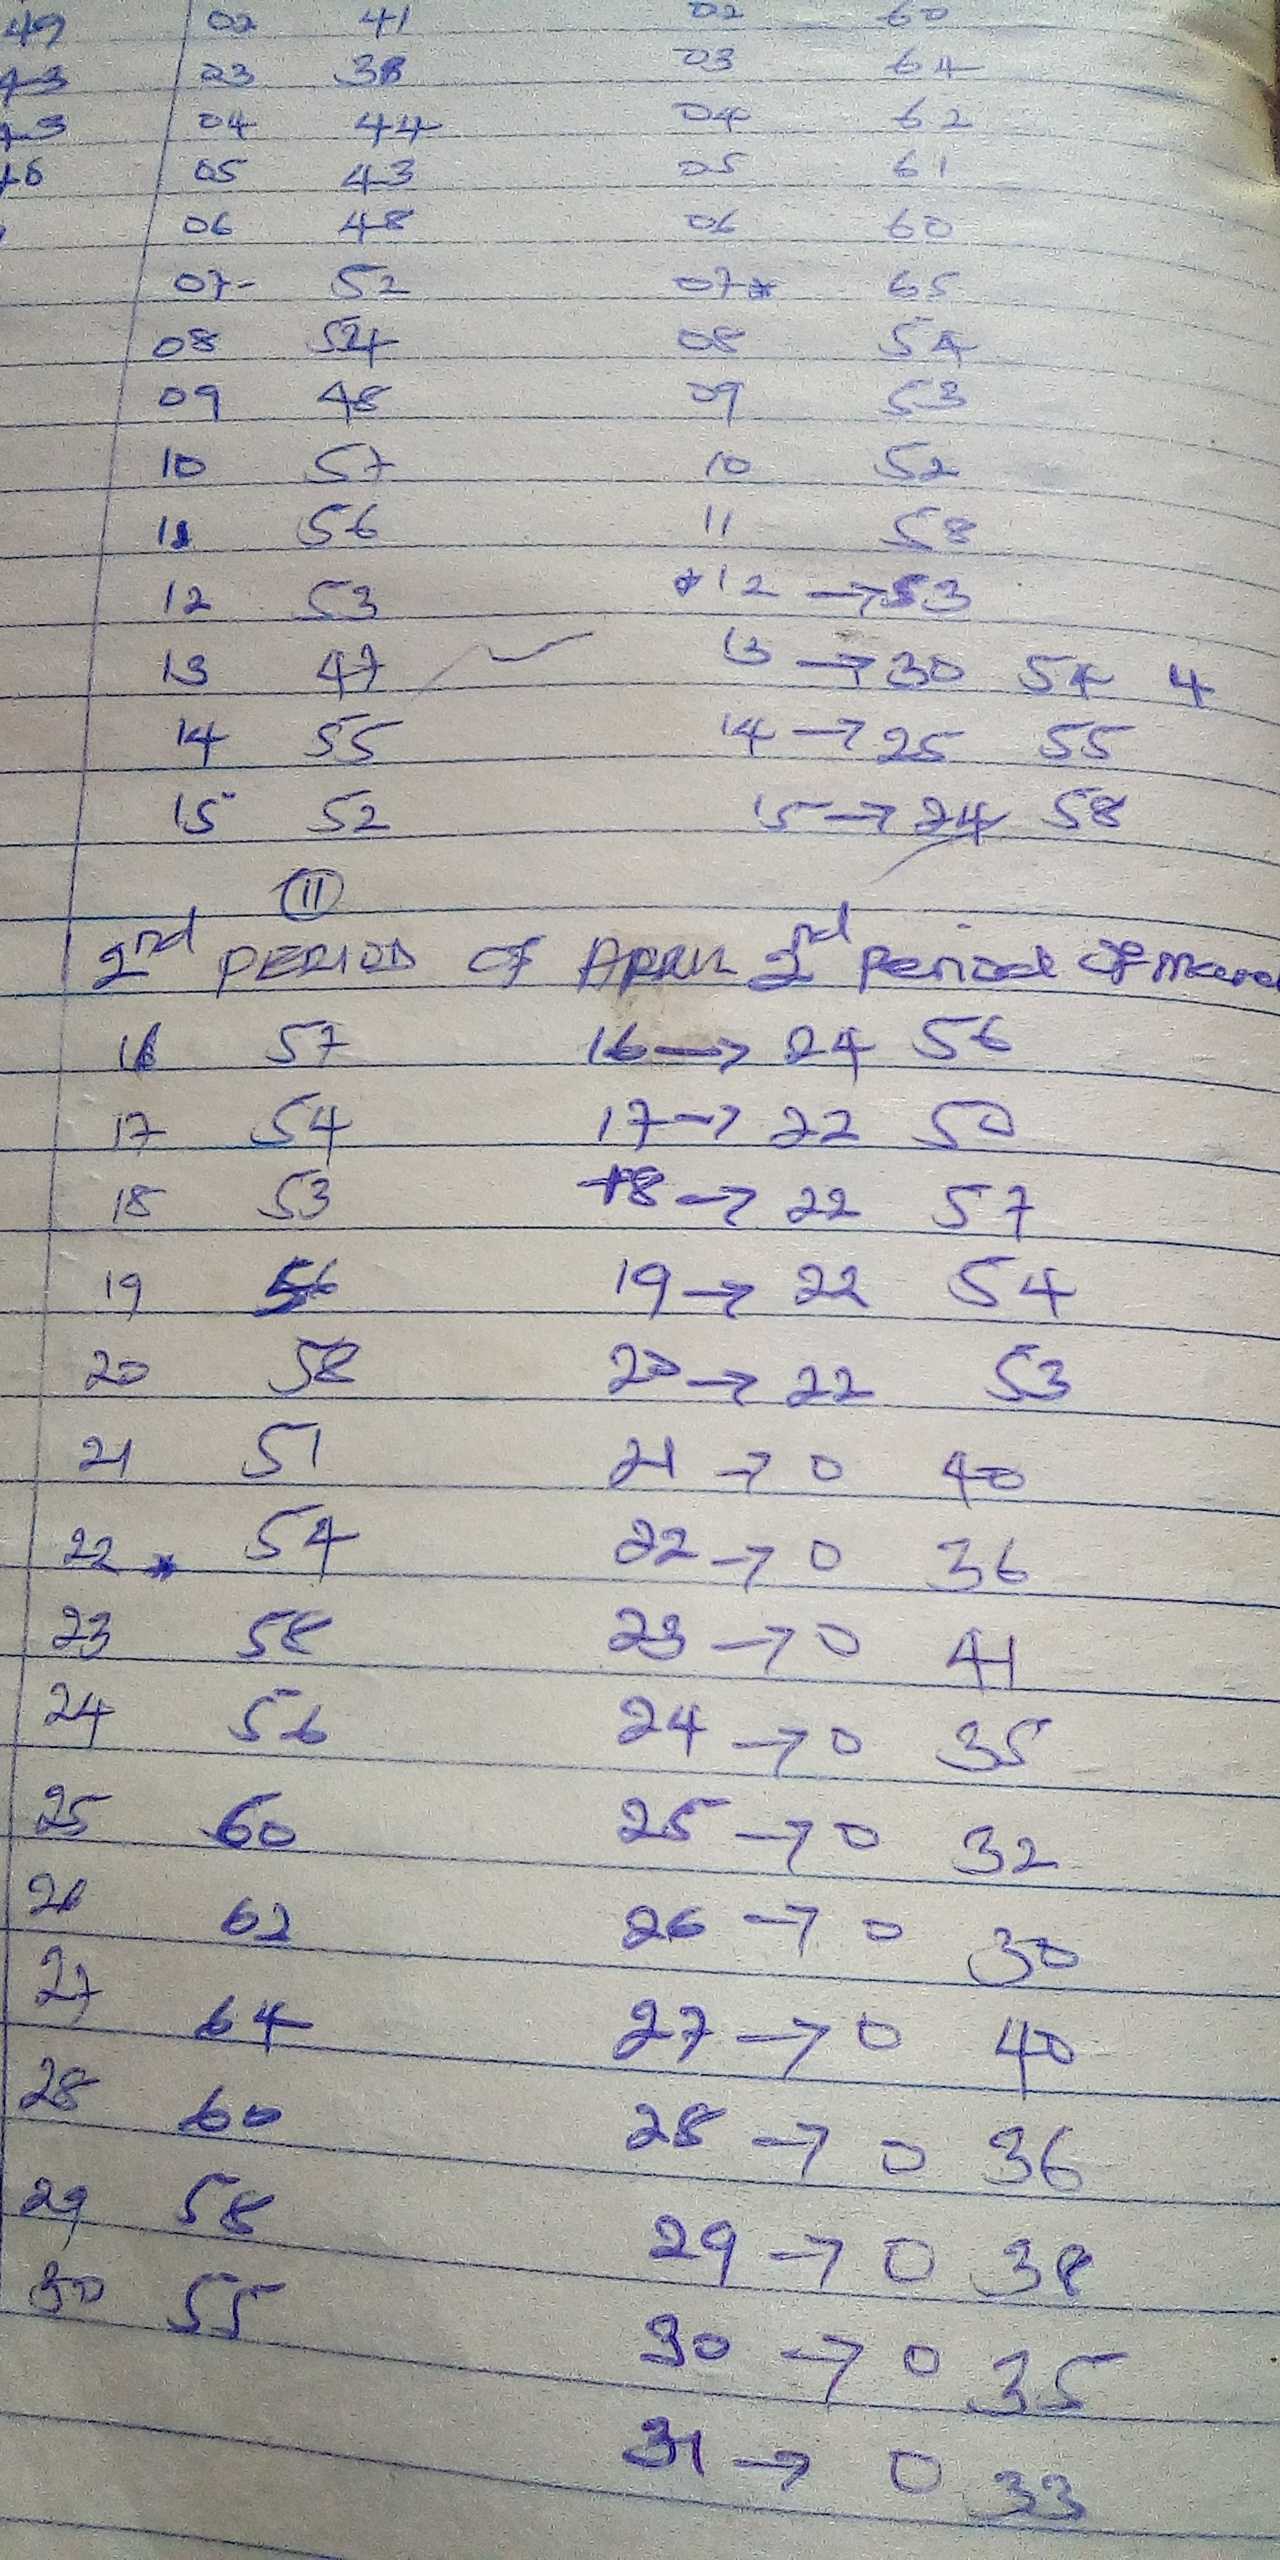 49 02 41 02 60
43 03 38 03 64
43 04 44 04 62
05 43 05 61
06 48 06 60
07- 52 07* 65
08 54 08 54
09 48 09 53
10 57 10 52
11 56 11 58
12 53 *12 → 53
13 47 13 → 30 54 4
14 55 14 → 25 55
15 52 15 → 24 58
(ii)
2nd PERIOD OF APRIL 2nd Period OF Marc
16 57 16 → 24 56
17 54 17 → 22 50
18 53 18 → 22 57
19 56 19 → 22 54
20 58 20 → 22 53
21 51 21 → 0 40
22 * 54 22 → 0 36
23 58 23 → 0 41
24 56 24 → 0 35
25 60 25 → 0 32
26 62 26 → 0 30
27 64 27 → 0 40
28 60 28 → 0 36
29 58 29 → 0 38
30 55 30 → 0 35
31 → 0 33